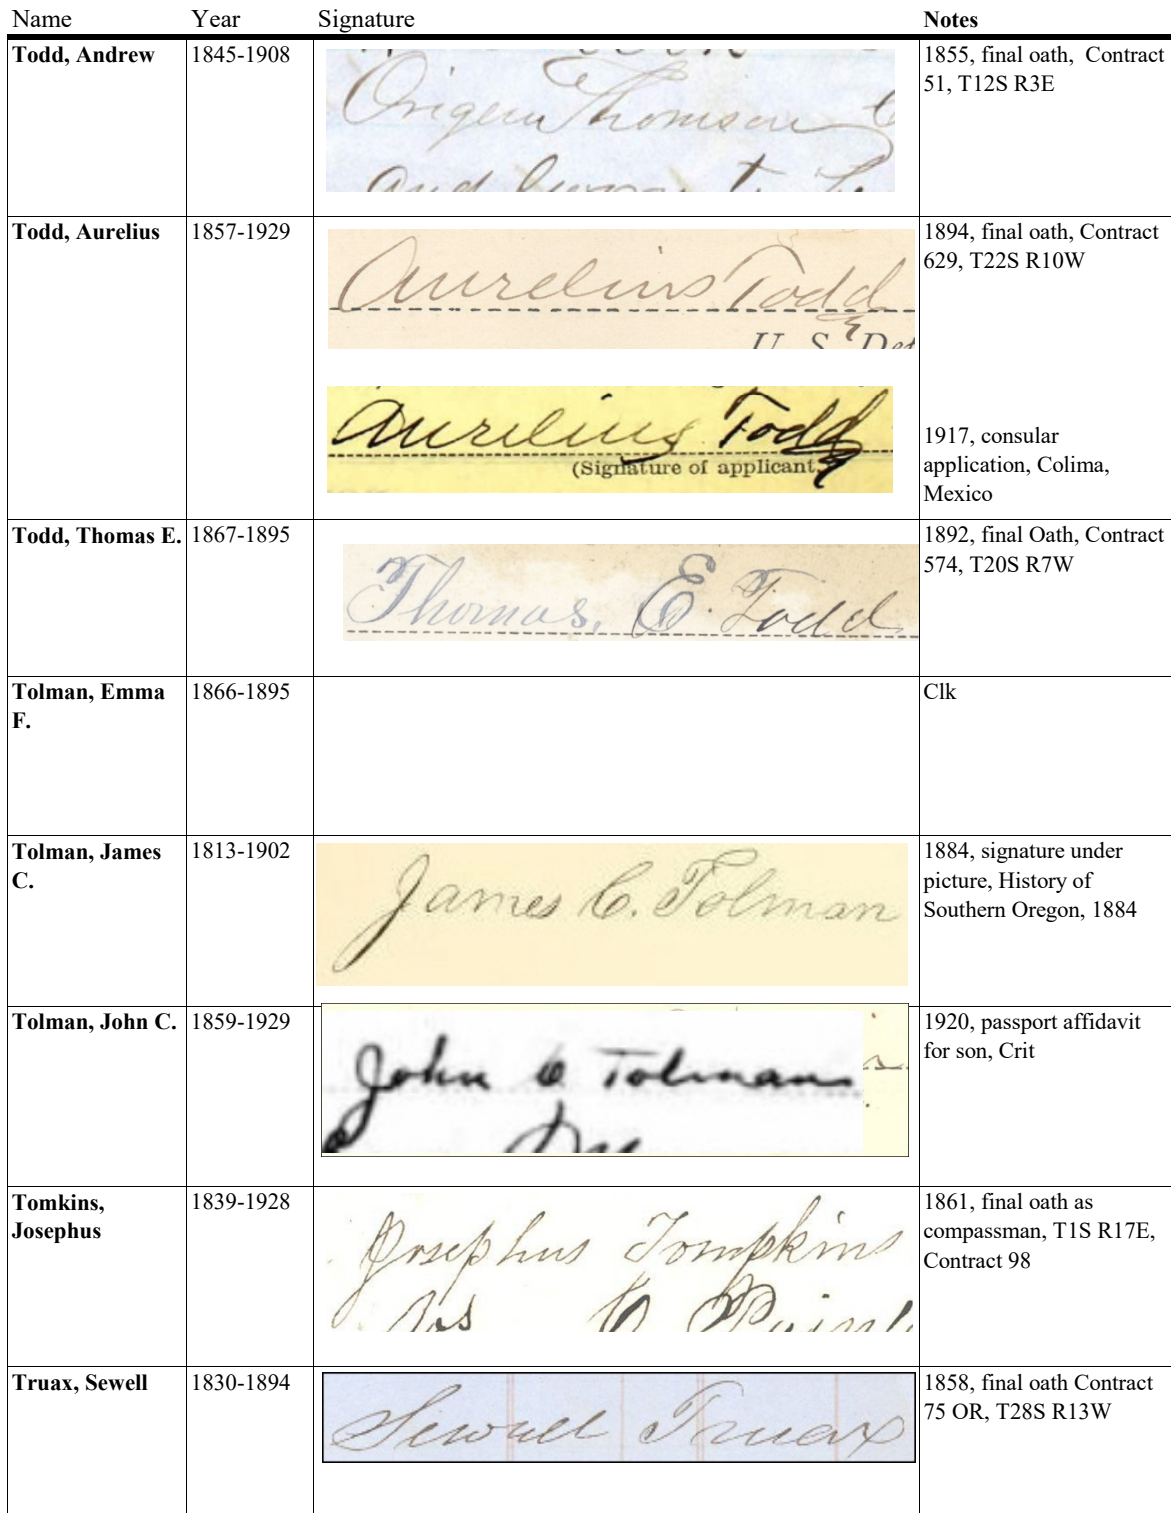 Name Year Signature Notes
Todd, Andrew 1845-1908 Origen Thomson 1855, final oath, Contract
51, T12S R3E
and
Todd, Aurelius 1857-1929 Aurelius Todd 1894, final oath, Contract
629, T22S R10W
U. S. De
Aurelius Todd
(Signature of applicant
1917, consular
application, Colima,
Mexico
Todd, Thomas E. 1867-1895 Thomas, E. Todd 1892, final Oath, Contract
574, T20S R7W
Tolman, Emma 1866-1895 Clk
F.
Tolman, James 1813-1902 James C. Tolman 1884, signature under
C. picture, History of
Southern Oregon, 1884
Tolman, John C. 1859-1929 John C Tolman 1920, passport affidavit
for son, Crit
Tomkins, 1839-1928 Josephus Tompkins 1861, final oath as
Josephus compassman, T1S R17E,
Contract 98
Jos
Truax, Sewell 1830-1894 Sewell Truax 1858, final oath Contract
75 OR, T28S R13W